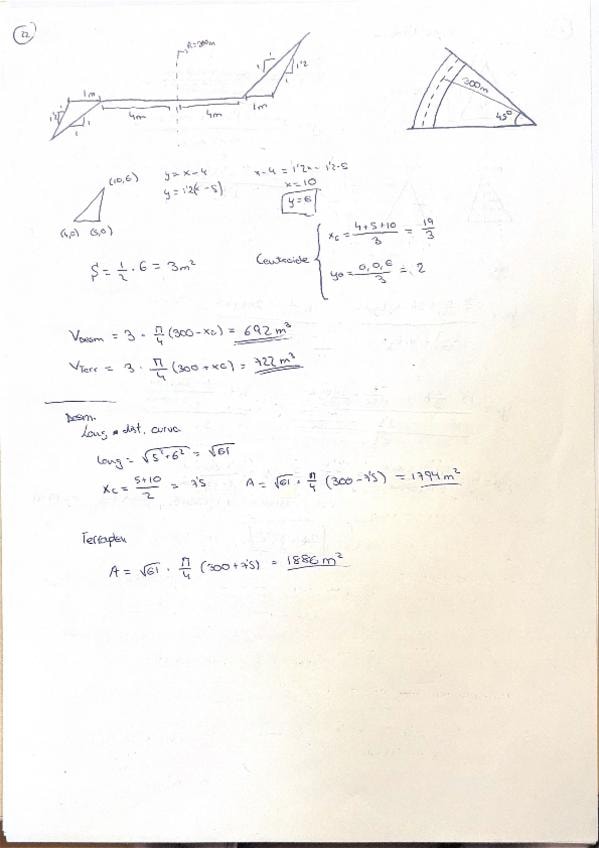 22
R=300m
1m
4m
4m
1m
1
1'2
1'2
1
1
1
300m
45º
(10,6)
(4,0) (5,0)
y = x-4
y = 1'2(x-5)
x-4 = 1'2x - 1'2·5
x=10
y=6
S = 1/2 · 6 = 3m²
Centroide
xc = (4+5+10)/3 = 19/3
yG = (0,0,6)/3 = 2
VDesm = 3 · π/4 (300-xc) = 692 m³
VTerr = 3 · π/4 (300+xc) = 722 m³
Desm.
Long · dist. curva
Long = √(5²+6²) = √61
xc = (5+10)/2 = 7'5 A = √61 · π/4 (300-7'5) = 1794 m²
Terraplen
A = √61 · π/4 (300+7'5) = 1886 m²